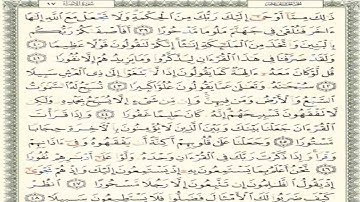 ١٧ سورة الإسراء
ذَٰلِكَ مِمَّا أَوْحَىٰ إِلَيْكَ رَبُّكَ مِنَ الْحِكْمَةِ وَلَا تَجْعَلْ مَعَ اللَّهِ إِلَٰهًا
ءَاخَرَ فَتُلْقَىٰ فِي جَهَنَّمَ مَلُومًا مَّدْحُورًا ٣٩ أَفَأَصْفَىٰكُمْ رَبُّكُم
بِالْبَنِينَ وَاتَّخَذَ مِنَ الْمَلَٰئِكَةِ إِنَٰثًا إِنَّكُمْ لَتَقُولُونَ قَوْلًا عَظِيمًا ٤٠
وَلَقَدْ صَرَّفْنَا فِي هَٰذَا الْقُرْءَانِ لِيَذَّكَّرُوا وَمَا يَزِيدُهُمْ إِلَّا نُفُورًا ٤١
قُل لَّوْ كَانَ مَعَهُ ءَالِهَةٌ كَمَا يَقُولُونَ إِذًا لَّابْتَغَوْا إِلَىٰ ذِي الْعَرْشِ سَبِيلًا
٤٢ سُبْحَٰنَهُ وَتَعَٰلَىٰ عَمَّا يَقُولُونَ عُلُوًّا كَبِيرًا ٤٣ تُسَبِّحُ لَهُ السَّمَٰوَٰتُ
السَّبْعُ وَالْأَرْضُ وَمَن فِيهِنَّ وَإِن مِّن شَيْءٍ إِلَّا يُسَبِّحُ بِحَمْدِهِ وَلَٰكِن
لَّا تَفْقَهُونَ تَسْبِيحَهُمْ إِنَّهُ كَانَ حَلِيمًا غَفُورًا ٤٤ وَإِذَا قَرَأْتَ
الْقُرْءَانَ جَعَلْنَا بَيْنَكَ وَبَيْنَ الَّذِينَ لَا يُؤْمِنُونَ بِالْءَاخِرَةِ حِجَابًا
مَّسْتُورًا ٤٥ وَجَعَلْنَا عَلَىٰ قُلُوبِهِمْ أَكِنَّةً أَن يَفْقَهُوهُ وَفِي ءَاذَانِهِمْ
وَقْرًا وَإِذَا ذَكَرْتَ رَبَّكَ فِي الْقُرْءَانِ وَحْدَهُ وَلَّوْا عَلَىٰ أَدْبَٰرِهِمْ نُفُورًا
٤٦ نَّحْنُ أَعْلَمُ بِمَا يَسْتَمِعُونَ بِهِ إِذْ يَسْتَمِعُونَ إِلَيْكَ وَإِذْ هُمْ نَجْوَىٰ
إِذْ يَقُولُ الظَّٰلِمُونَ إِن تَتَّبِعُونَ إِلَّا رَجُلًا مَّسْحُورًا ٤٧ انظُرْ
كَيْفَ ضَرَبُوا لَكَ الْأَمْثَالَ فَضَلُّوا فَلَا يَسْتَطِيعُونَ سَبِيلًا ٤٨